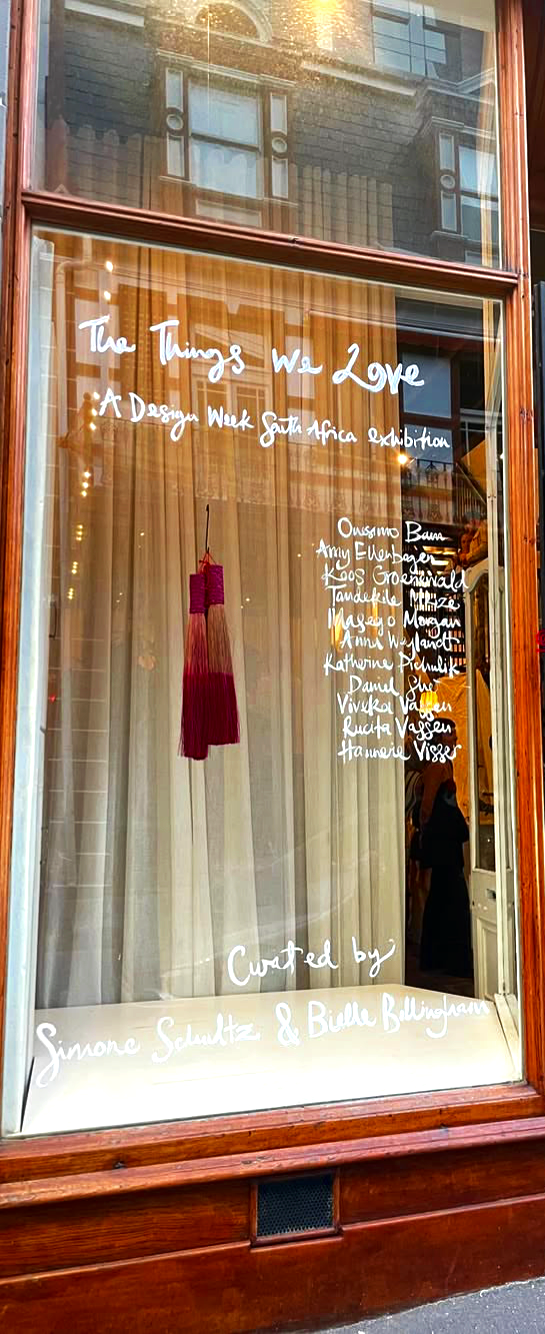 The Things We Love
A Design Week South Africa exhibition
Onesimo Bam
Amy Ellenbogen
Koos Groenewald
Tandekile Mkize
Maseyo Morgan
Anna Weylandt
Katherine Pichulik
Daniel
Viveka Vassen
Rucita Vassen
Hannerie Visser
Curated by
Simone Schultz & Bielle Bellingham